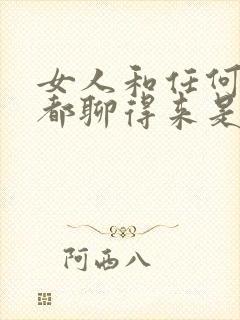 女人和任何
都聊得来是
阿西八